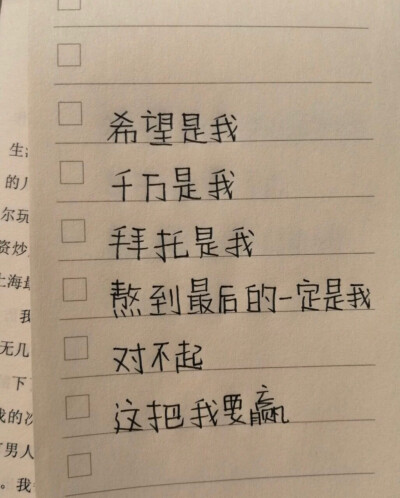 希望是我
千万是我
拜托是我
熬到最后的一定是我
对不起
这把我要赢
生
的几
尔玩
资炒
上海
我
无几
下
我的次
男人
。我